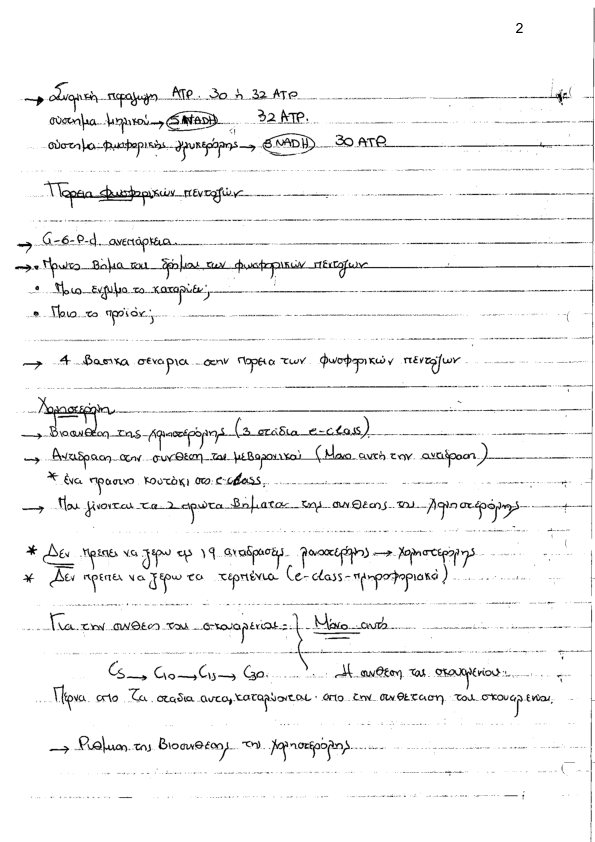 2
→ Συνολική παραγωγή ATP. 30 ή 32 ATP
σύστημα μηλικού → 5 NADH 32 ATP.
σύστημα φωσφορικής γλυκερόλης → 5 NADH 30 ATP
Πορεια φωσφορικών πεντοζών
→ G-6-P-d. ανεπάρκεια.
→ • Πρωτο Βήμα του δρόμου των φωσφορικών πεντοζων
• Ποιο ενζυμο το καταλύει;
• Ποιο το προϊόν;
→ 4 Βασικα σεναρια στην πορεια των φωσφορικών πεντόζων
Χοληστερόλη
→ Βιοσυνθεση της χοληστερόλης (3 στάδια e-class)
→ Αντιδραση στην συνθεση του μεβαλονικού (Μονο αυτή την αντιδραση)
* ένα πρασινο κουτάκι στο e-class.
→ Που γίνονται τα 2 πρωτα Βήματα της συνθεσης της χοληστερόλης
* Δεν πρεπει να ξερω τις 19 αντιδράσεις λανοστερόλης → χοληστερόλης
* Δεν πρεπει να ξερω τα τερπένια (e-class-πληροφοριακά)
Για την συνθεση του σκουαλενιου: } Μόνο αυτό
C5 → C10 → C15 → C30. Η συνθεση του σκουαλενιου.
Περνα απο τα σταδια αυτα, καταλυονται απο την συνθεταση του σκουαλενιου.
→ Ρυθμιση της Βιοσυνθεσης της χοληστερόλης